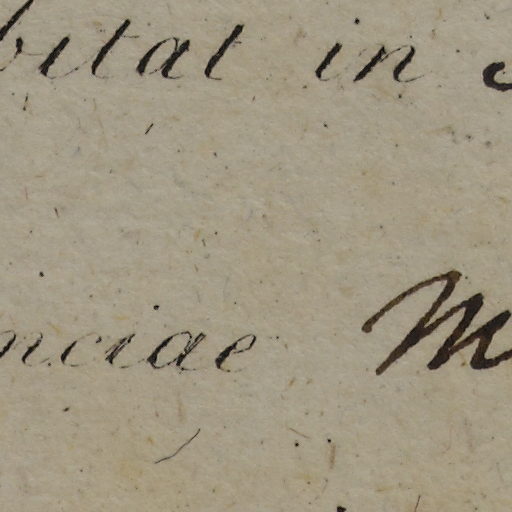 bitat in
nciae M